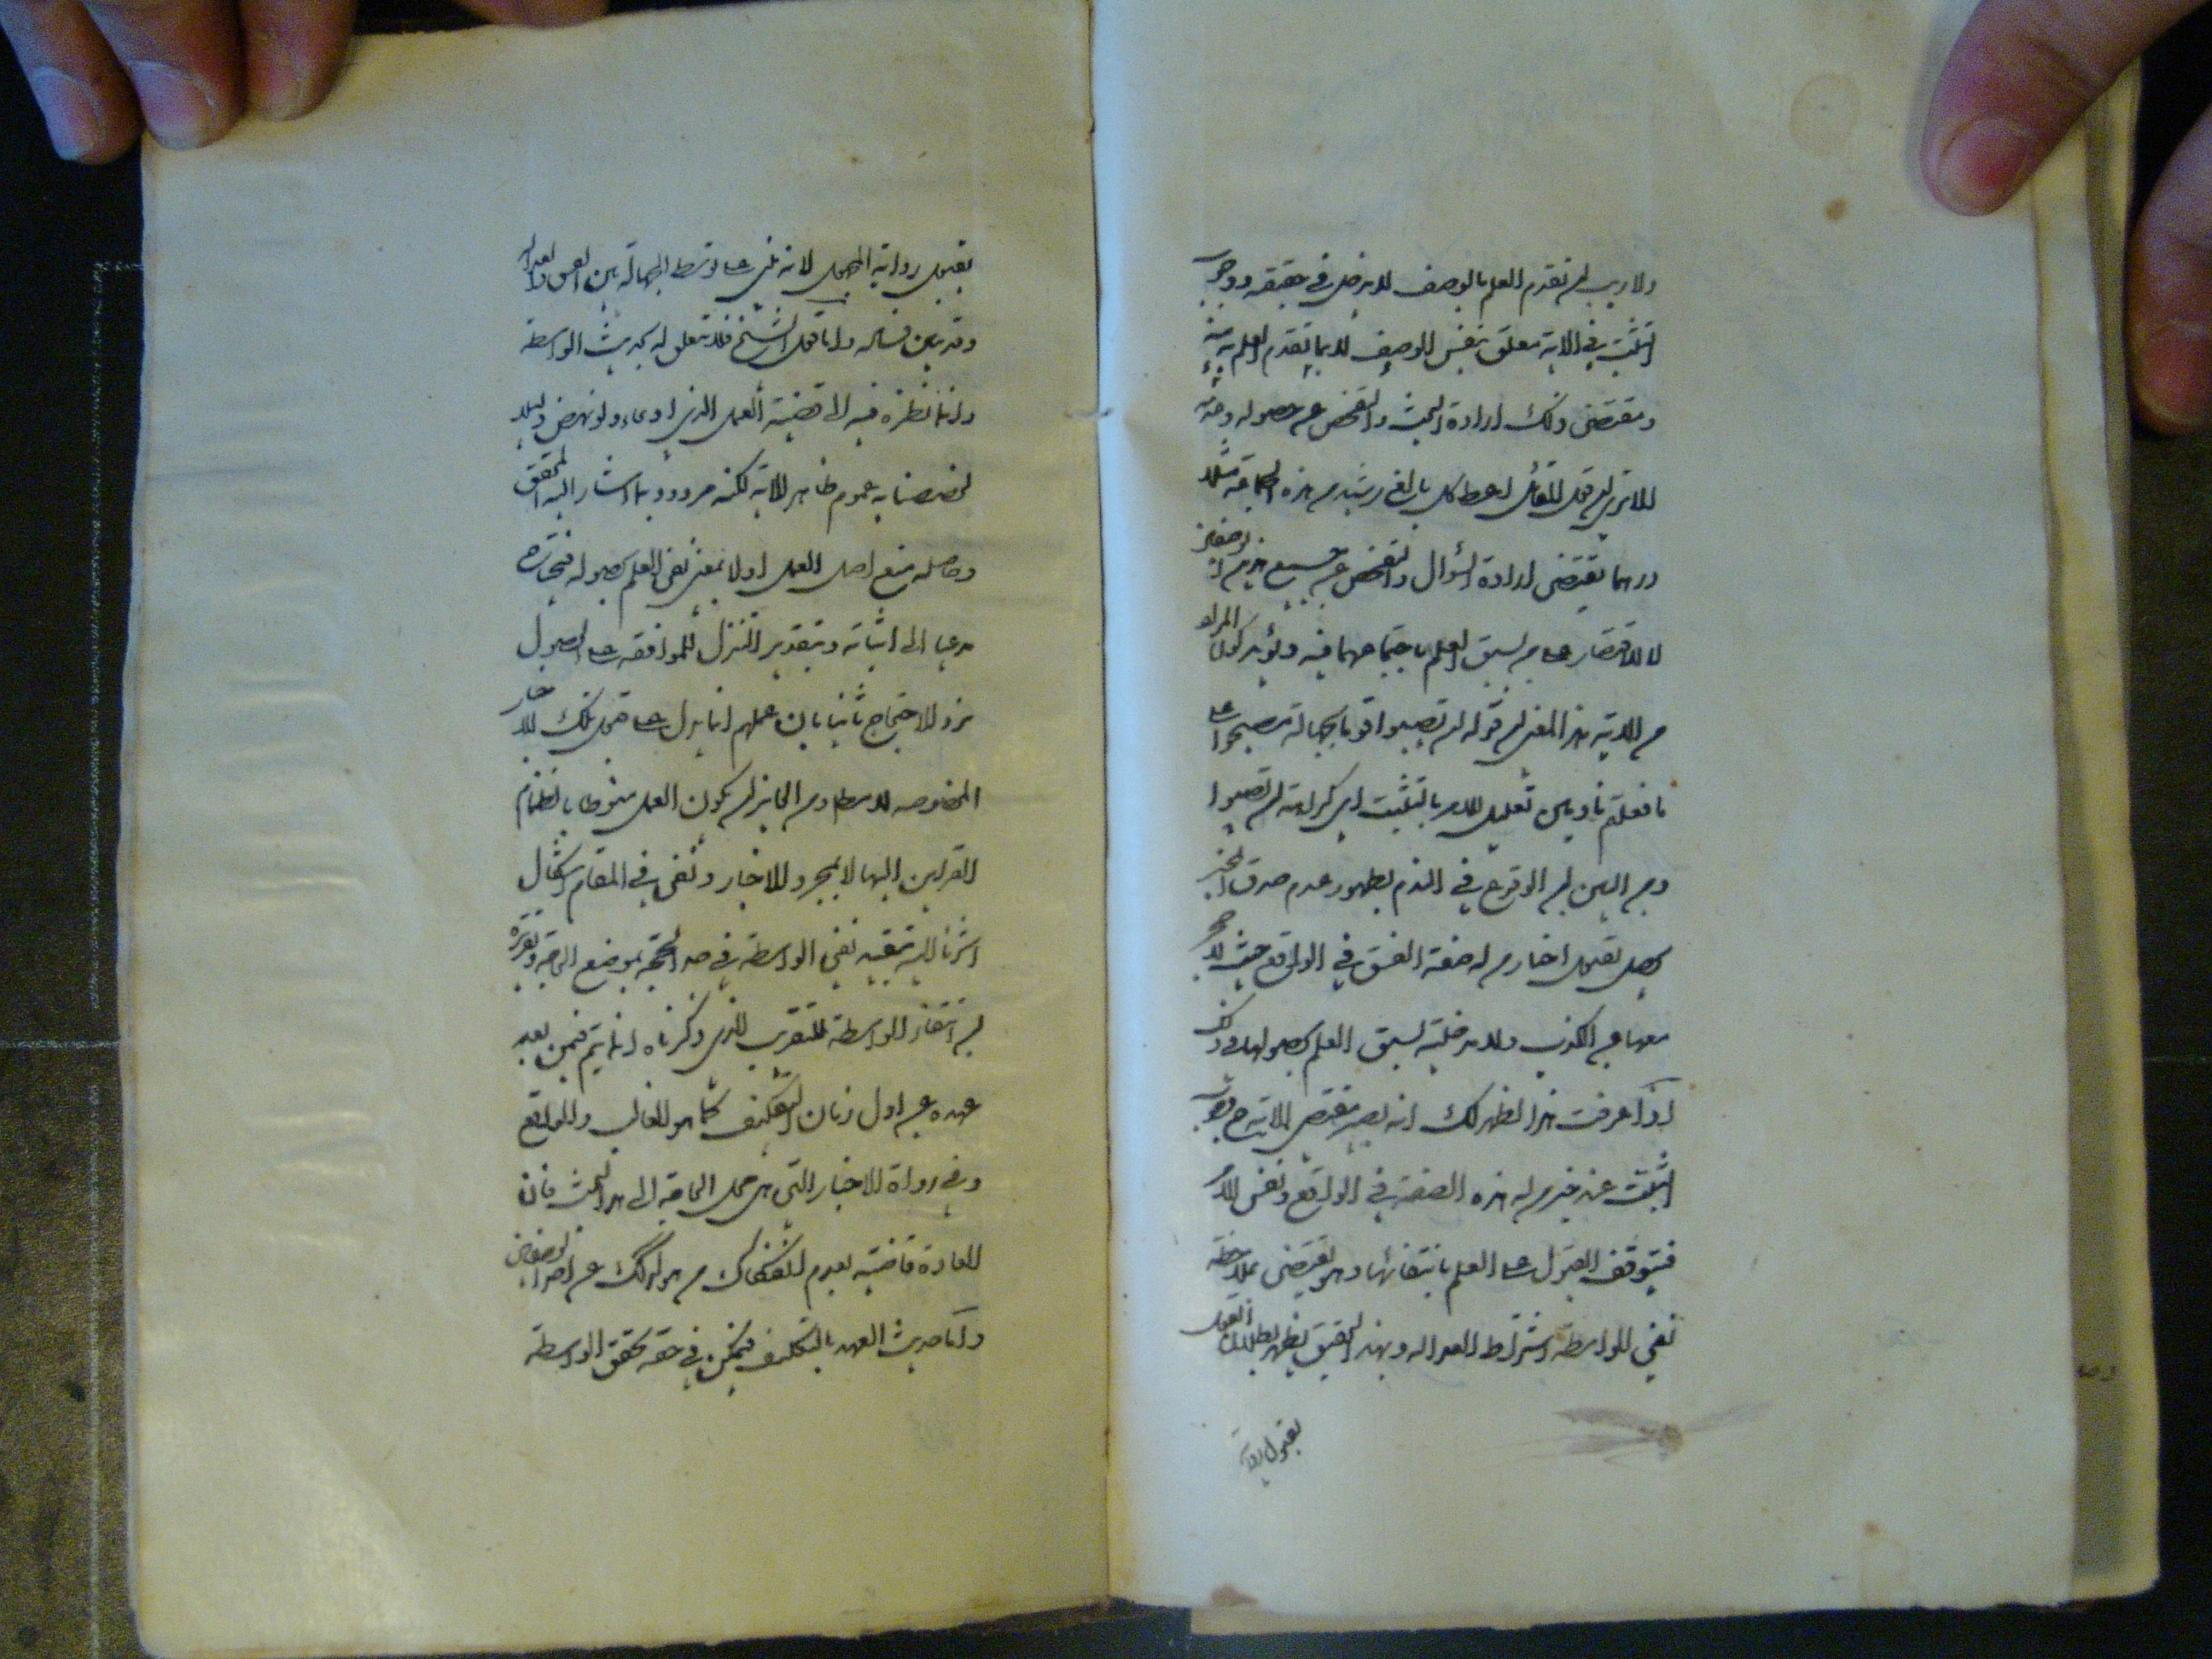 ولا ريب ان تقدم العلم بالوصف لا مدخل في حقيقته ووجوب
التثبت في الاية معلق بنفس الوصف لا بما تقدم العلم به منه
ومقتضى ذلك ارادة البحث والتفحص عن حصوله وعدمه
الا ترى ان قول القائل اعط كل بالغ رشيد من هذه الجماعة مثلا
درهما يقتضى ارادة السؤال والتفحص عن جميع هذين الوصفين
لا الاقتصار على من سبق العلم باجتماعهما فيه ويؤيد كون المراد
من الاية هذا المعنى ان قوله ان تصيبوا قوما بجهالة فتصبحوا على
ما فعلتم نادمين تعليل للامر بالتثبت اى كراهة ان تصيبوا
ومن البين ان الوقوع في الندم لظهور عدم صدق المخبر
يحصل بقبول اخبار من له صفة الفسق في الواقع حيث لا حجر
معها عن الكذب ولا مدخلية لسبق العلم بحصولها في ذلك
اذا عرفت هذا ظهر لك انه يصير مقتضى الاية ح وجوب
التثبت عند خبر من له هذه الصفة في الواقع ونفس الامر
فيتوقف القبول على العلم بانتفائها وهو يقتضى بملاحظة
نفي الواسطة اشتراط العدالة وبهذا التحقيق يظهر بطلان القول
بقبول رواية
بقبول رواية المجهول لانه مبنى على توسط الجهالة بين الفسق والعدالة
وقد تبين فساده واما قول الشيخ فلا تعلق له بحديث الواسطة
وانما نظره فيه الى قضية العمل الذى ادعاه ولو نهض دليلا
لخصصنا به عموم ظاهر الاية لكنه مردود بما اشار اليه المحقق
وحاصله منع اصل العمل اولا بمعنى نفى العلم بحصوله فيحتاج
مدعيا الى اثباته وبتقدير التنزل للموافقة على الحصول
يرد الاحتجاج ثانيا بان عملهم انما يدل على قبول تلك الاخبار
المخصوصة لا مطلقا ومن الجايز ان يكون العمل منوطا بانضمام
القراين اليها لا بمجرد الاخبار وبقى في المقام اشكال
اشرنا اليه بتقييد نفى الواسطة في صدر الحجة بموضع الحاجة وتقريره
ان انتفاء الواسطة للتقريب الذى ذكرناه انما يتم فيمن بعد
عهده عن اول زمان التكليف كما هو الغالب والواقع
في رواة الاخبار التى هى محل الحاجة الى هذا البحث فان
العادة قاضية بعدم انفكاك من هو كذلك عن احد الوصفين
واما حديث العهد بالتكليف فيمكن في حقه تحقق الواسطة